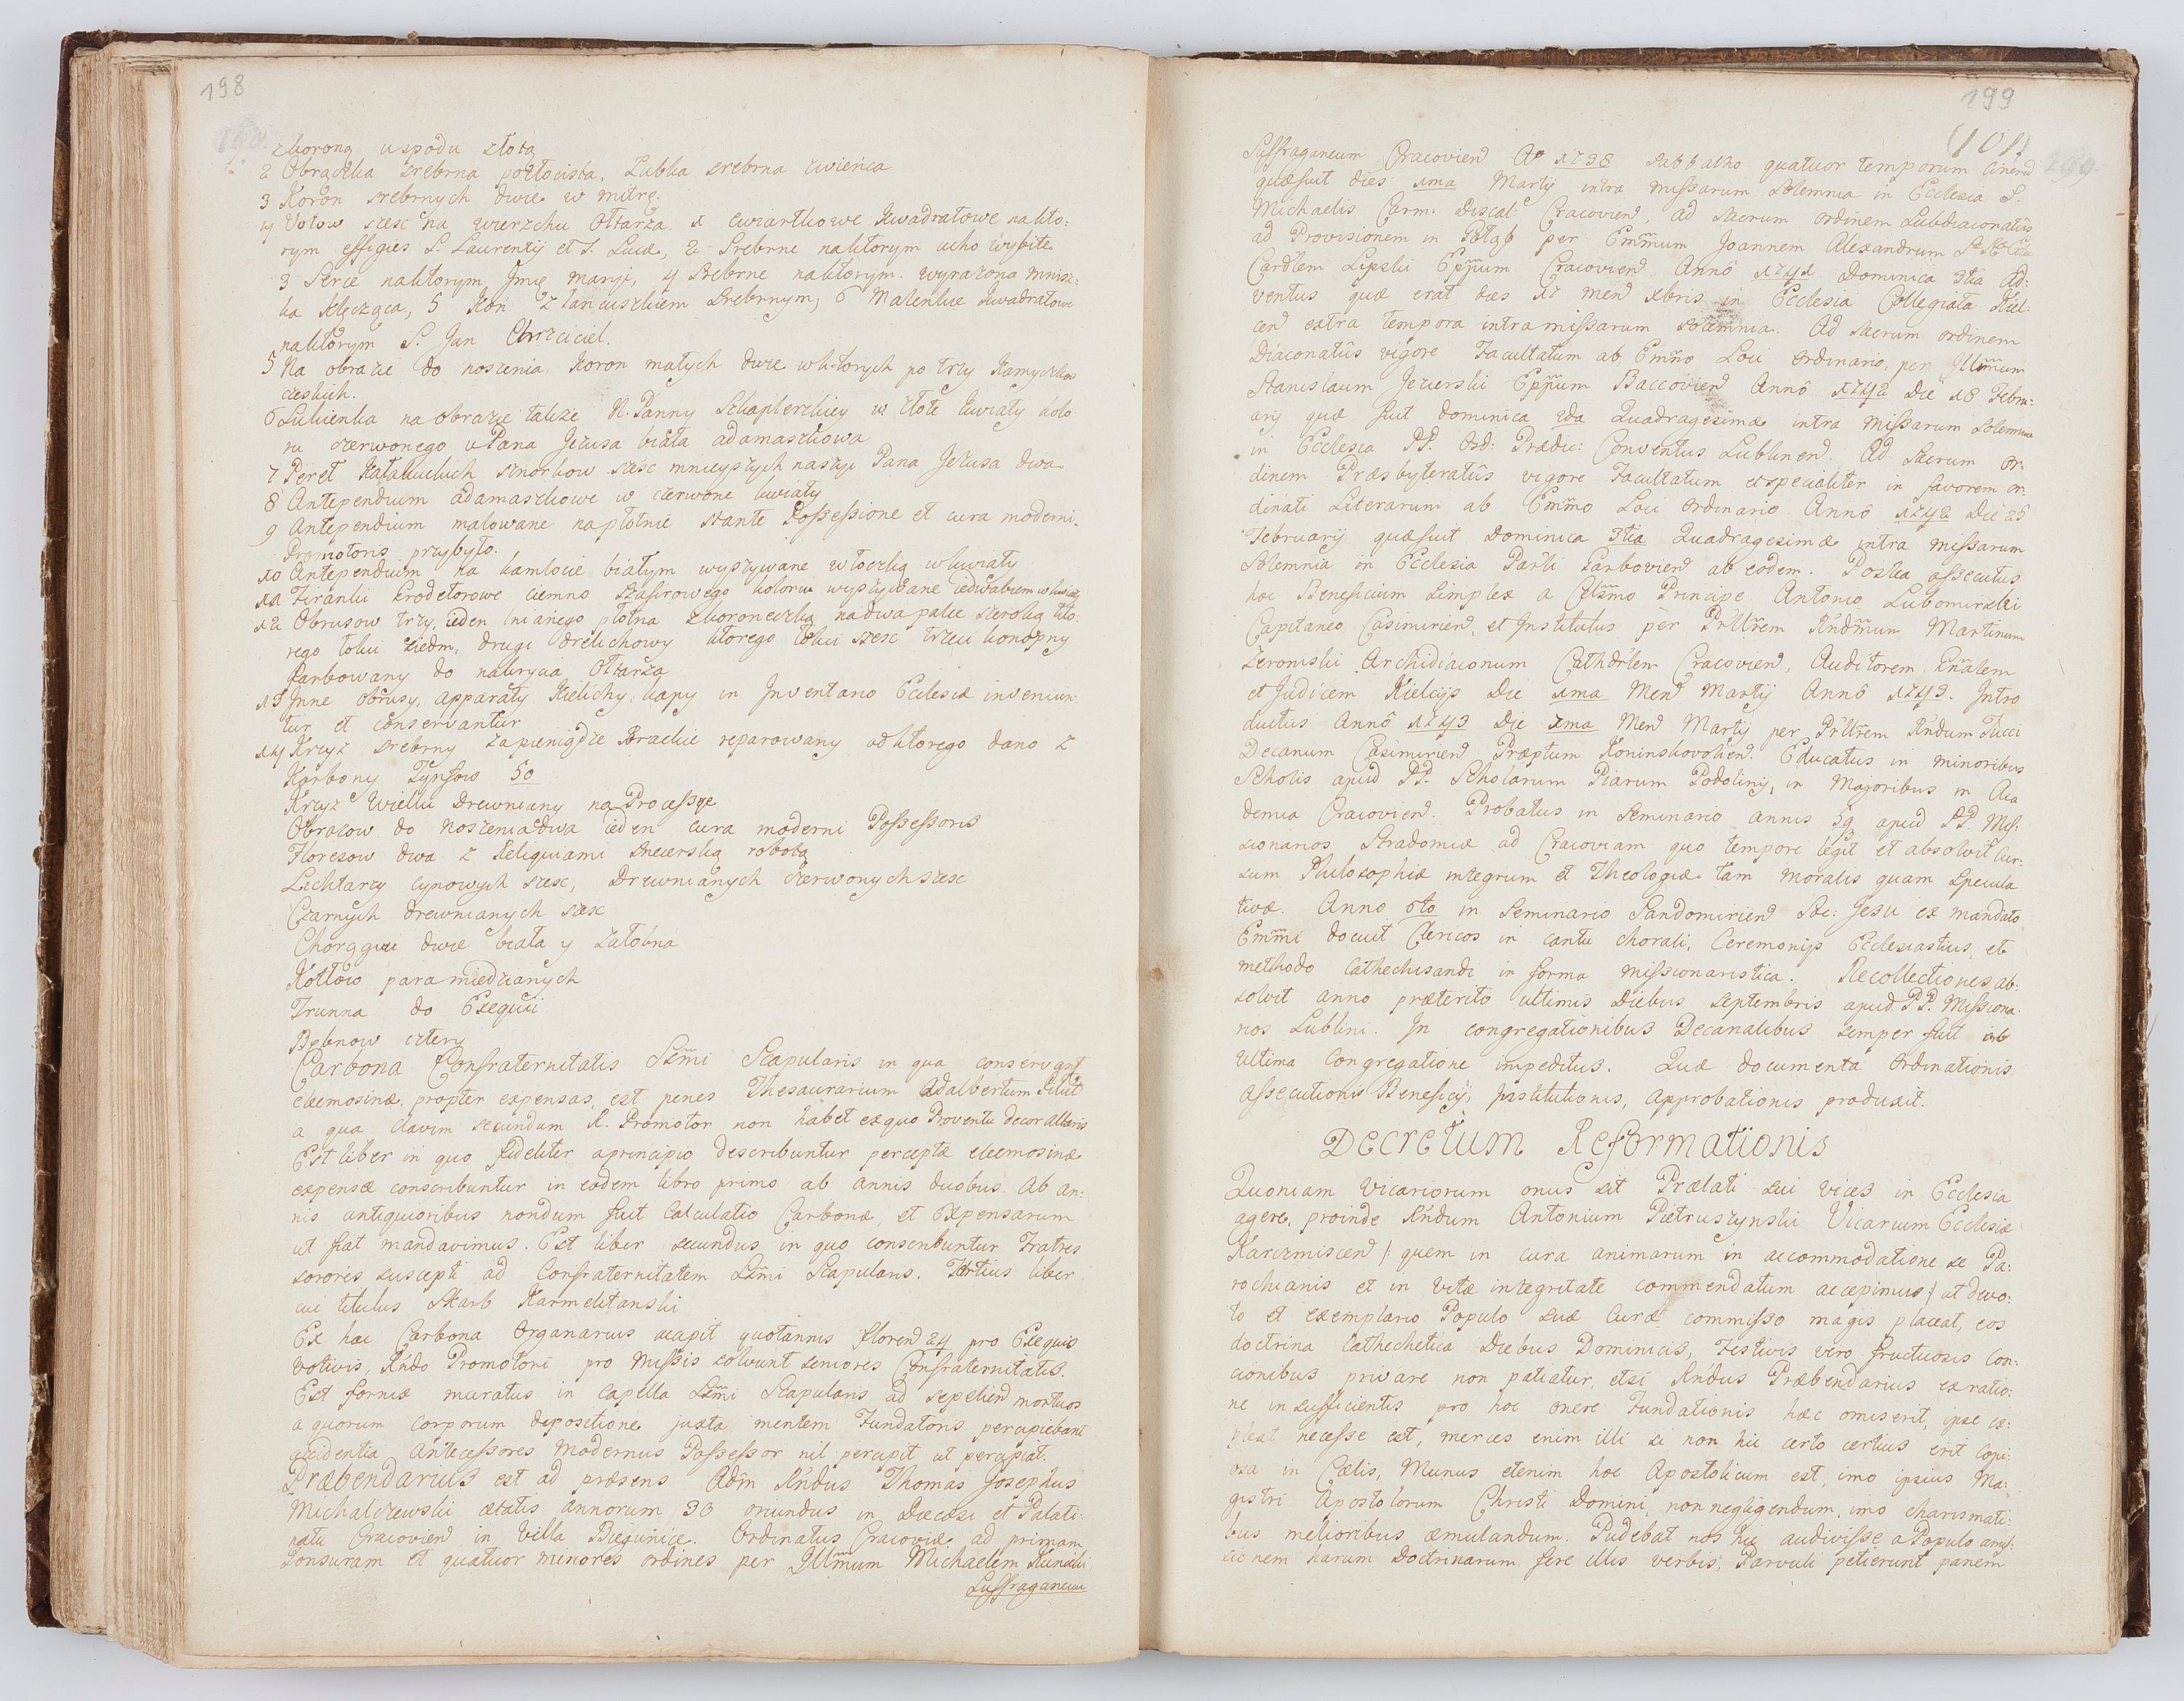 198
zkoroną uspodu złotą
2 Obrączka srebrna pozłocista, Lubka srebrna zwieńca
3 Koron srebrnych dwie w mitrę.
4 Votow szesc na wierzchu Ołtarza. 1 cwiartkowe kwadratowe nakto:
rym effigies S. Laurentij et S. Luciæ, 2 Srebrne naktorym ucho wybite
3 Serce naktorym Jmię maryi, 4 Srebrne naktorym wyrażona mnisz:
ka klęcząca, 5 Kon z łancuszkiem Srebrnym, 6 Malenkie kwadratowe
naktorym S. Jan Chrzciciel.
5 Na obrazie do noszenia Koron małych dwie wktorych po trzy Kamyczkow
czeskich.
6 Sukienka na obrazie takze N. Panny Szkaplerzney w złote kwiaty kolo
ru czerwonego u Pana Jezusa biała adamaszkowa
7 Pereł Kałakuckich sznorkow szesc mnieyszych naszyi Pana Jezusa dwa
8 Antependium adamaszkowe w czerwone kwiaty
9 Antependium malowane napłotnie stante Possessione et cura moderni
Promotoris przybyło.
10 Antependium na kamlocie białym wyszywane włoczką wkwiaty
11 Firanki Grodetorowe ciemno szafirowego koloru wyszywane iedwabiem wkwiaty
12 Obrusow trzy, ieden lnianego płotna zkoroneczką nadwa palce szeroką kto:
rego łokci siedm, drugi drelichowy ktorego łokci szesc trzeci konopny
farbowany do nakrycia Ołtarza
13 Jnne obrusy, apparaty Kielichy, kapy in Inventario Ecclesiæ inveniun
tur et conservantur
14 Krzyż srebrny zapieniądze Brackie reparowany od ktorego dano z
Karbony Tynfow 50
Krzyż Wielki Drewniany na Processye
Obrazow do noszenia dwa ieden cura moderni Possessoris
Floresow dwa z Reliquiami snicerską robotą
Lichtarzy cynowych szesc, Drewnianych czerwonych szesc
Czarnych drewnianych szesc
Chorągwi dwie biała y załobna
Kotłow para miedzianych
Trunna do Exequii
Bębnow cztery
Carbona Confraternitatis SSmi Scapularis in qua conservant
eleemosinæ propter expensas, est penes Thesaurarium Adalbertum
a qua clavim secundam R. Promotor non habet ex quo Proventu decor altaris
Est liber in quo fideliter aprincipio describuntur perceptæ eleemosinæ
expensæ conscribuntur in eodem libro primo ab annis duobus. Ab an:
nis antiquioribus nondum fuit Calculatio Carbonæ, et Expensarum
ut fiat mandavimus. Est liber secundus in quo conscribuntur Fratres
sorores suscepti ad Confraternitatem SSmi Scapularis. Tertius liber
cui titulus Skarb Karmelitanski
Ex hac Carbona Organarius accipit quotannis floren 24 pro Exequiis
votivis, Rndo Promotori pro Missis solvunt seniores Confraternitatis.
Est fornix muratus in Capella SSmi Scapularis ad sepeliend mortuos
a quorum Corporum depositione juxta mentem Fundatoris percipiebant
accidentia Antecessores Modernus Possessor nil percipit ut percipiat.
Præbendarius est ad præsens Adm Rndus Thomas Josephus
Michalczewski ætatis annorum 33 oriundus in Diæcesi et Palati:
natu Cracovien in Villa Biegunice. Ordinatus Cracoviæ ad primam
Tonsuram et quatuor minores ordines per Jllmum Michaelem Kunicki
Suffraganeum
199
(101)
Suffraganeum Cracovien Ao 1738 sabbatho quatuor temporum Cinerum
quæ fuit dies 1ma Martij intra missarum solemnia in Ecclesia S.
Michaelis Carm: Discal: Cracovien, ad sacrum ordinem Subdiaconatûs
ad Provisionem in per Emmum Joannem Alexandrum
Cardlem Lipski Eppum Cracovien Annô 1741 Dominica 3tia Ad:
ventus quæ erat dies 17 men xbris in Ecclesia Collegiata Kiel:
cen extra tempora intra missarum solemnia. Ad sacrum ordinem
Diaconatûs vigore Facultatum ab Emmo Loci ordinario, per Jllmum
Stanislaum Jezierski Eppum Baccovien Annô 1742 Die 18 Febru:
arij quæ fuit dominica 2da Quadragesimæ intra Missarum solemnia
in Ecclesia PP. Ord: Prædic: Conventus Lublinen. Ad sacrum or:
dinem Præsbyteratûs vigore Facultatum et specialiter in favorem or:
dinati Literarum ab Emmo Loci ordinario Annô 1742 Die 25
Februarij quæ fuit Dominica 3tia Quadragesimæ intra missarum
solemnia in Ecclesia Parli Garbovien ab eodem. Postea assecutus
hoc Beneficium simplex a Celsmo Principe Antonio Lubomirski
Capitaneo Casimirien, et Institutus per Prllrem Rndmum Martinum
Zeromski Archidiaconum Cathdrlem Cracovien, Auditorem Gnalem
et Judicem Kielcijs Die 1ma Men Martij Annô 1743. Intro
ductus Annô 1743 Die 7ma Men Martij per Prllrem Rndum Tucci
Decanum Casimirien Præptum Koninskovolien. Educatus in minoribus
Scholis apud PP. Scholarum Piarum Podolinij, in Majoribus in Aca
demia Cracovien. Probatus in Seminario annis apud PP. Mis:
sionarios Stradomiæ ad Cracoviam quo tempore legit et absolvit Cur:
sum Philosophiæ integrum et Theologiæ tam moralis quam specula
tivæ. Anno 6to in Seminario Sandomirien Soc: Jesu ex mandato
Emmi docuit Clericos in cantu chorali, Ceremonijs Ecclesiasticis, et
methodo Cathechisandi in forma missionaristica. Recollectiones ab:
solvit anno præterito ultimis Diebus septembris apud PP. Missiona
rios Lublini. In congregationibus Decanalibus semper fuit ab
ultima Congregatione impeditus. Quæ documenta Ordinationis
assecutionis Beneficij, institutionis, approbationis produxit.
Decretum Reformationis
Quoniam Vicariorum onus sit Prælati sui vices in Ecclesia
agere, proinde Rndum Antonium Pietruszynski Vicarium Ecclesiæ
Karczmiscen /: quem in cura animarum in accommodatione se Pa:
rochianis et in vitæ integritate commendatum accepimus :/ ut devo:
to et exemplario Populo suæ Curæ commisso magis placeat, eos
doctrina Cathechetica Diebus Dominicis, Festivis vero fructuosis Con:
cionibus privare non patiatur, etsi Rndus Præbendarius ex ratio:
ne insufficientis pro hoc onere Fundationis hæc omiserit, ipse ex:
pleat necesse est, merces enim illi si non hic certo certius erit Copi:
osa in Cœlis, Munus etenim hoc Apostolicum est, imo ipsius Ma:
gistri Apostolorum Christi Domini, non negligendum, imo charismati:
bus melioribus æmulandum. Pudebat nos hic audivisse a Populo
sionem harum Doctrinarum fere illis verbis, Parvuli petierunt panem